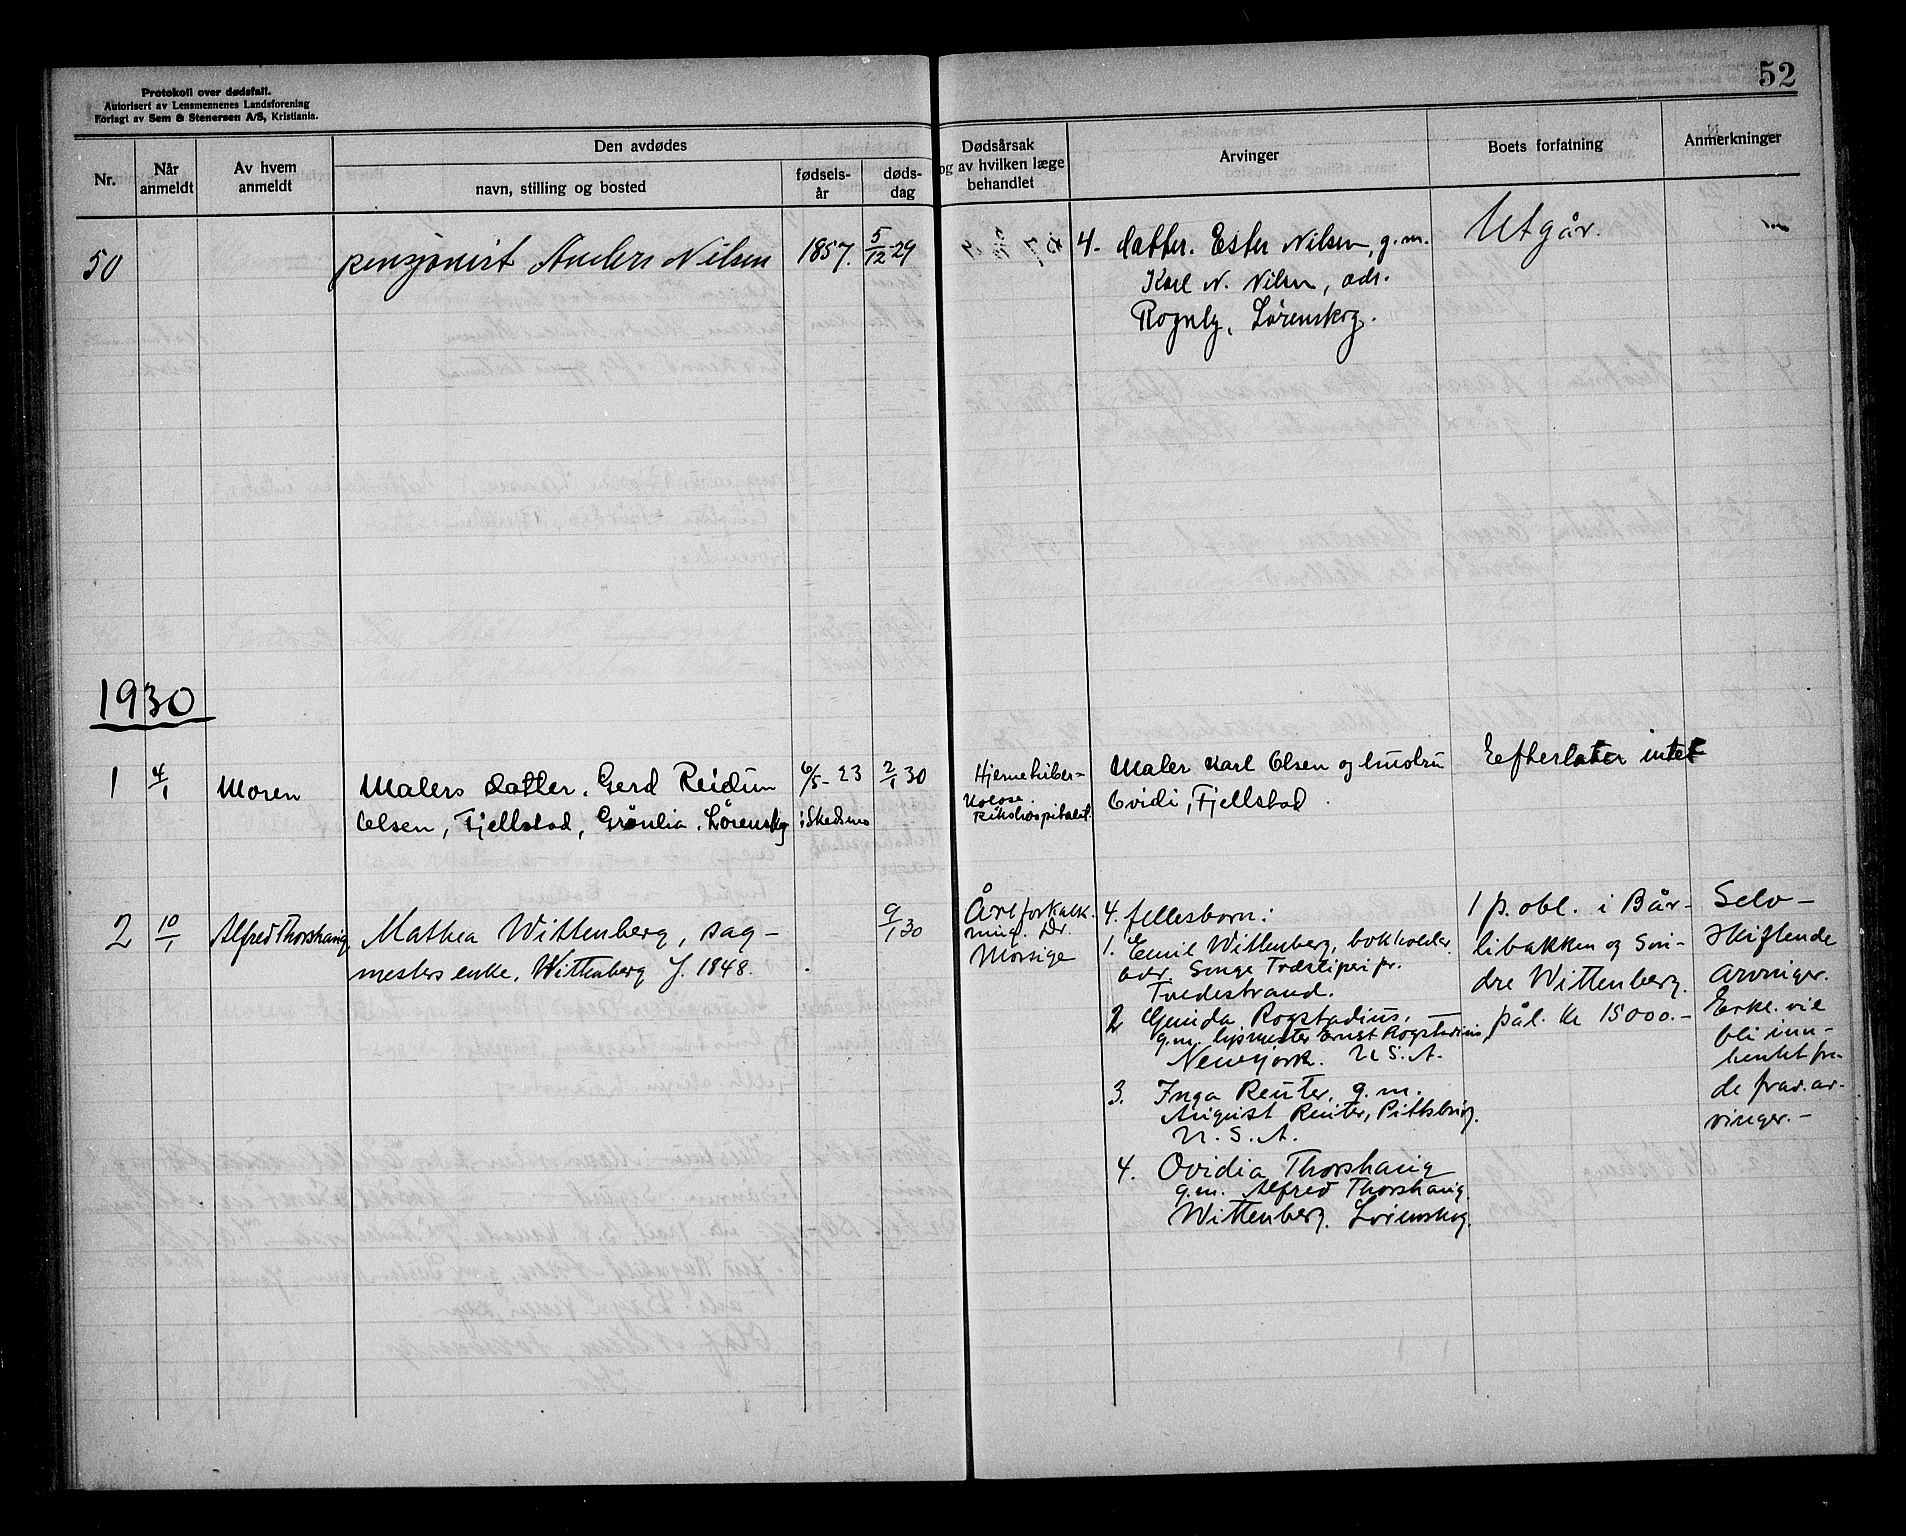 52
Protokoll over dødsfall.
Autorisert av Lensmennenes Landsforening
Forlagt av Sem & Stenersen A/S, Kristiania.
Nr.
Når anmeldt
Av hvem anmeldt
Den avdødes
navn, stilling og bosted
fødselsår
dødsdag
Dødsårsak og av hvilken læge behandlet
Arvinger
Boets forfatning
Anmerkninger
50
pensjonist Anders Nilsen
1857.
5/12-29
4. datter. Ester Nilsen, g.m.
Karl N. Nilsen, adr.
Rognly, Lørenskog.
Utgår.
1930
1
4/1
Moren
Malers datter, Gerd Reidun
Olsen, Fjellstad, Grønlia, Lørenskog
6/5-23
i Skedsmo
2/1 30
Hjernetuber-
kulose.
Rikshospitalet.
Maler Karl Olsen og hustru
Ovidi, Fjellstad.
Eefterlater intet
2
10/1
Alfred Thorshaug
Mathea Wittenberg, sag-
mesters enke, Wittenberg f. 1848.
9/1 30
Åreforkalk-
ning. Dr.
Morsige
4. fellesborn:
1. Emil Wittenberg, bokholder
adr. Songe Træsliperi pr.
Tvedestrand.
2 Gunda Rogstadius,
g.m. lysmester Ernst Rogstadius,
Newyork. U.S.A.
3. Inga Reuter, g.m.
August Reuter, Pittsburg.
U.S.A.
4. Ovidia Thorshaug
g.m. Alfred Thorshaug.
Wittenberg. Lørenskog.
1 p. obl. i Bår-
libakken og Sön-
dre Wittenberg.
pål. kr 15000.-
Selv-
skiftende
arvinger.
Erkl. vil
bli inn-
hentet fra
de frav. ar-
vinger.-